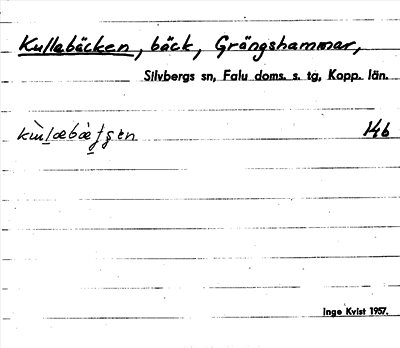 Kullabäcken, bäck, Grängshammar,
Silvbergs sn, Falu doms. s. tg, Kopp. län.
146
Inge Kvist 1957.